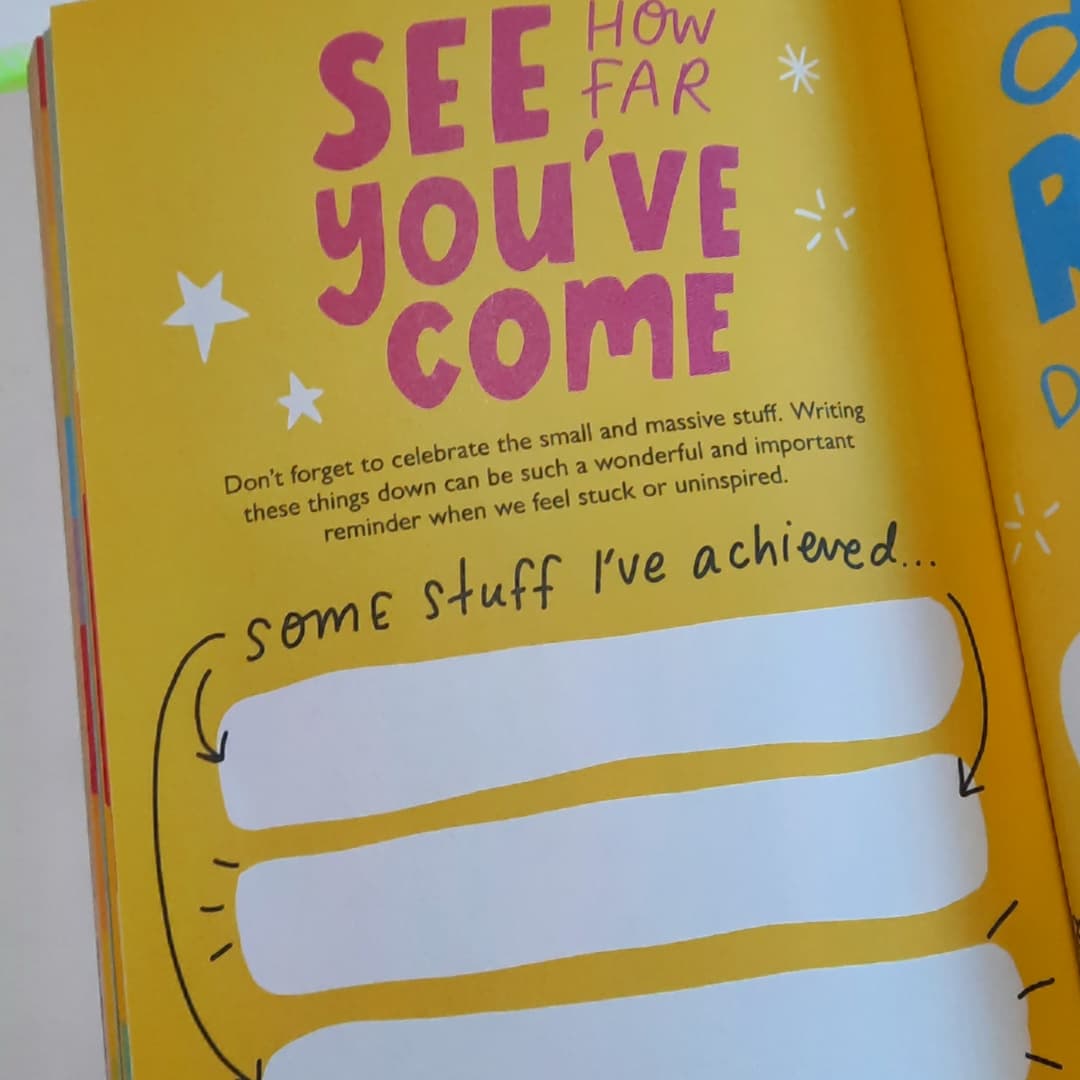 SEE HOW
FAR
YOU'VE
COME
Don't forget to celebrate the small and massive stuff. Writing
these things down can be such a wonderful and important
reminder when we feel stuck or uninspired.
SOME stuff I've achieved...